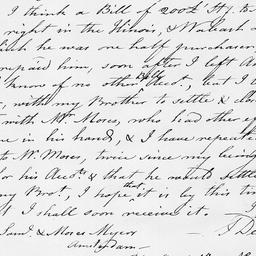 I think a Bill of 200£ Stg. to
right in the Illinois, & Wabash
he was one half purchaser,
repaid him, soon after I left
know of no other Debts Acct., but I
, with my Brother to settle &
with Mr. Moses, who had other
in his hands, & I have repeate
to Mr. Moses, twice since my being
for his Accts. & that he would settle
my Brot., I hope that it is by this time
I shall soon receive it.
Saml. & Moses Myers
Amsterdam